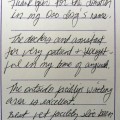 Thank you for the donation
in my Doc dog's name.
The doctors and assistant
for very patient &
ful in my time of anguish
The outside facility waiting
area is excellent.
Best vet facility I've been